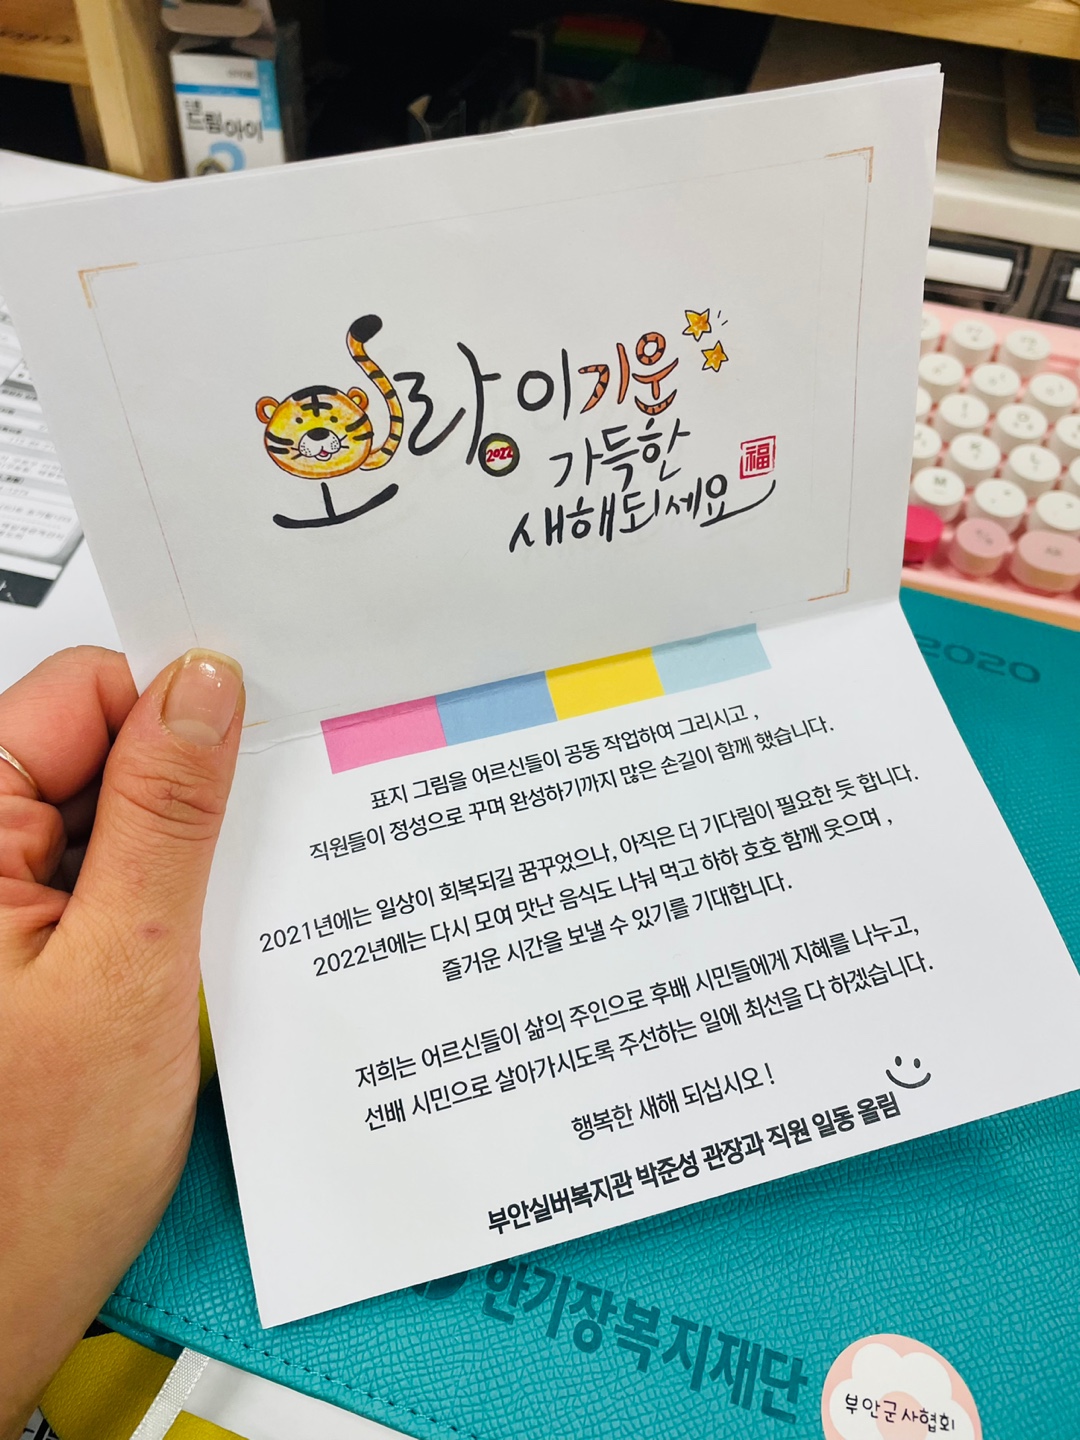 드림아이
호랑이기운
2022
가득한
福
새해되세요
2020
표지 그림을 어르신들이 공동 작업하여 그리시고 ,
직원들이 정성으로 꾸며 완성하기까지 많은 손길이 함께 했습니다.
2021년에는 일상이 회복되길 꿈꾸었으나, 아직은 더 기다림이 필요한 듯 합니다.
2022년에는 다시 모여 맛난 음식도 나눠 먹고 하하 호호 함께 웃으며 ,
즐거운 시간을 보낼 수 있기를 기대합니다.
저희는 어르신들이 삶의 주인으로 후배 시민들에게 지혜를 나누고,
선배 시민으로 살아가시도록 주선하는 일에 최선을 다 하겠습니다.
행복한 새해 되십시오 !
부안실버복지관 박준성 관장과 직원 일동 올림
한기장복지재단
부안군사협회